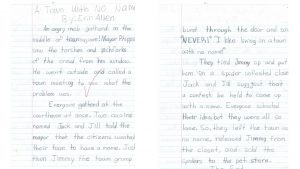 A Town With No Name
By Erin Allen
An angry mob gathered in the
middle of town square. Mayor Phipps
saw the torches and pitchforks
of the crowd from his window.
He went outside and called a
town meeting to see what the
problem was.
Everyone gathered at the
courthouse at once. Two citizens
named Jack and Jill told the
mayor that the citizens wanted
their town to have a name. Just
then Jimmy the town grump
burst through the door and said
"NEVER!" I like living in a town
with no name!"
They tied Jimmy up and put
him in a spider infested closet.
Jack and Jill suggest that
a contest be held to come up
with a name. Everyone submitted
their idea but they were all so
lame. So, they left the town as
no name, released Jimmy from
the closet, and sold the
spiders to the pet store.
The End